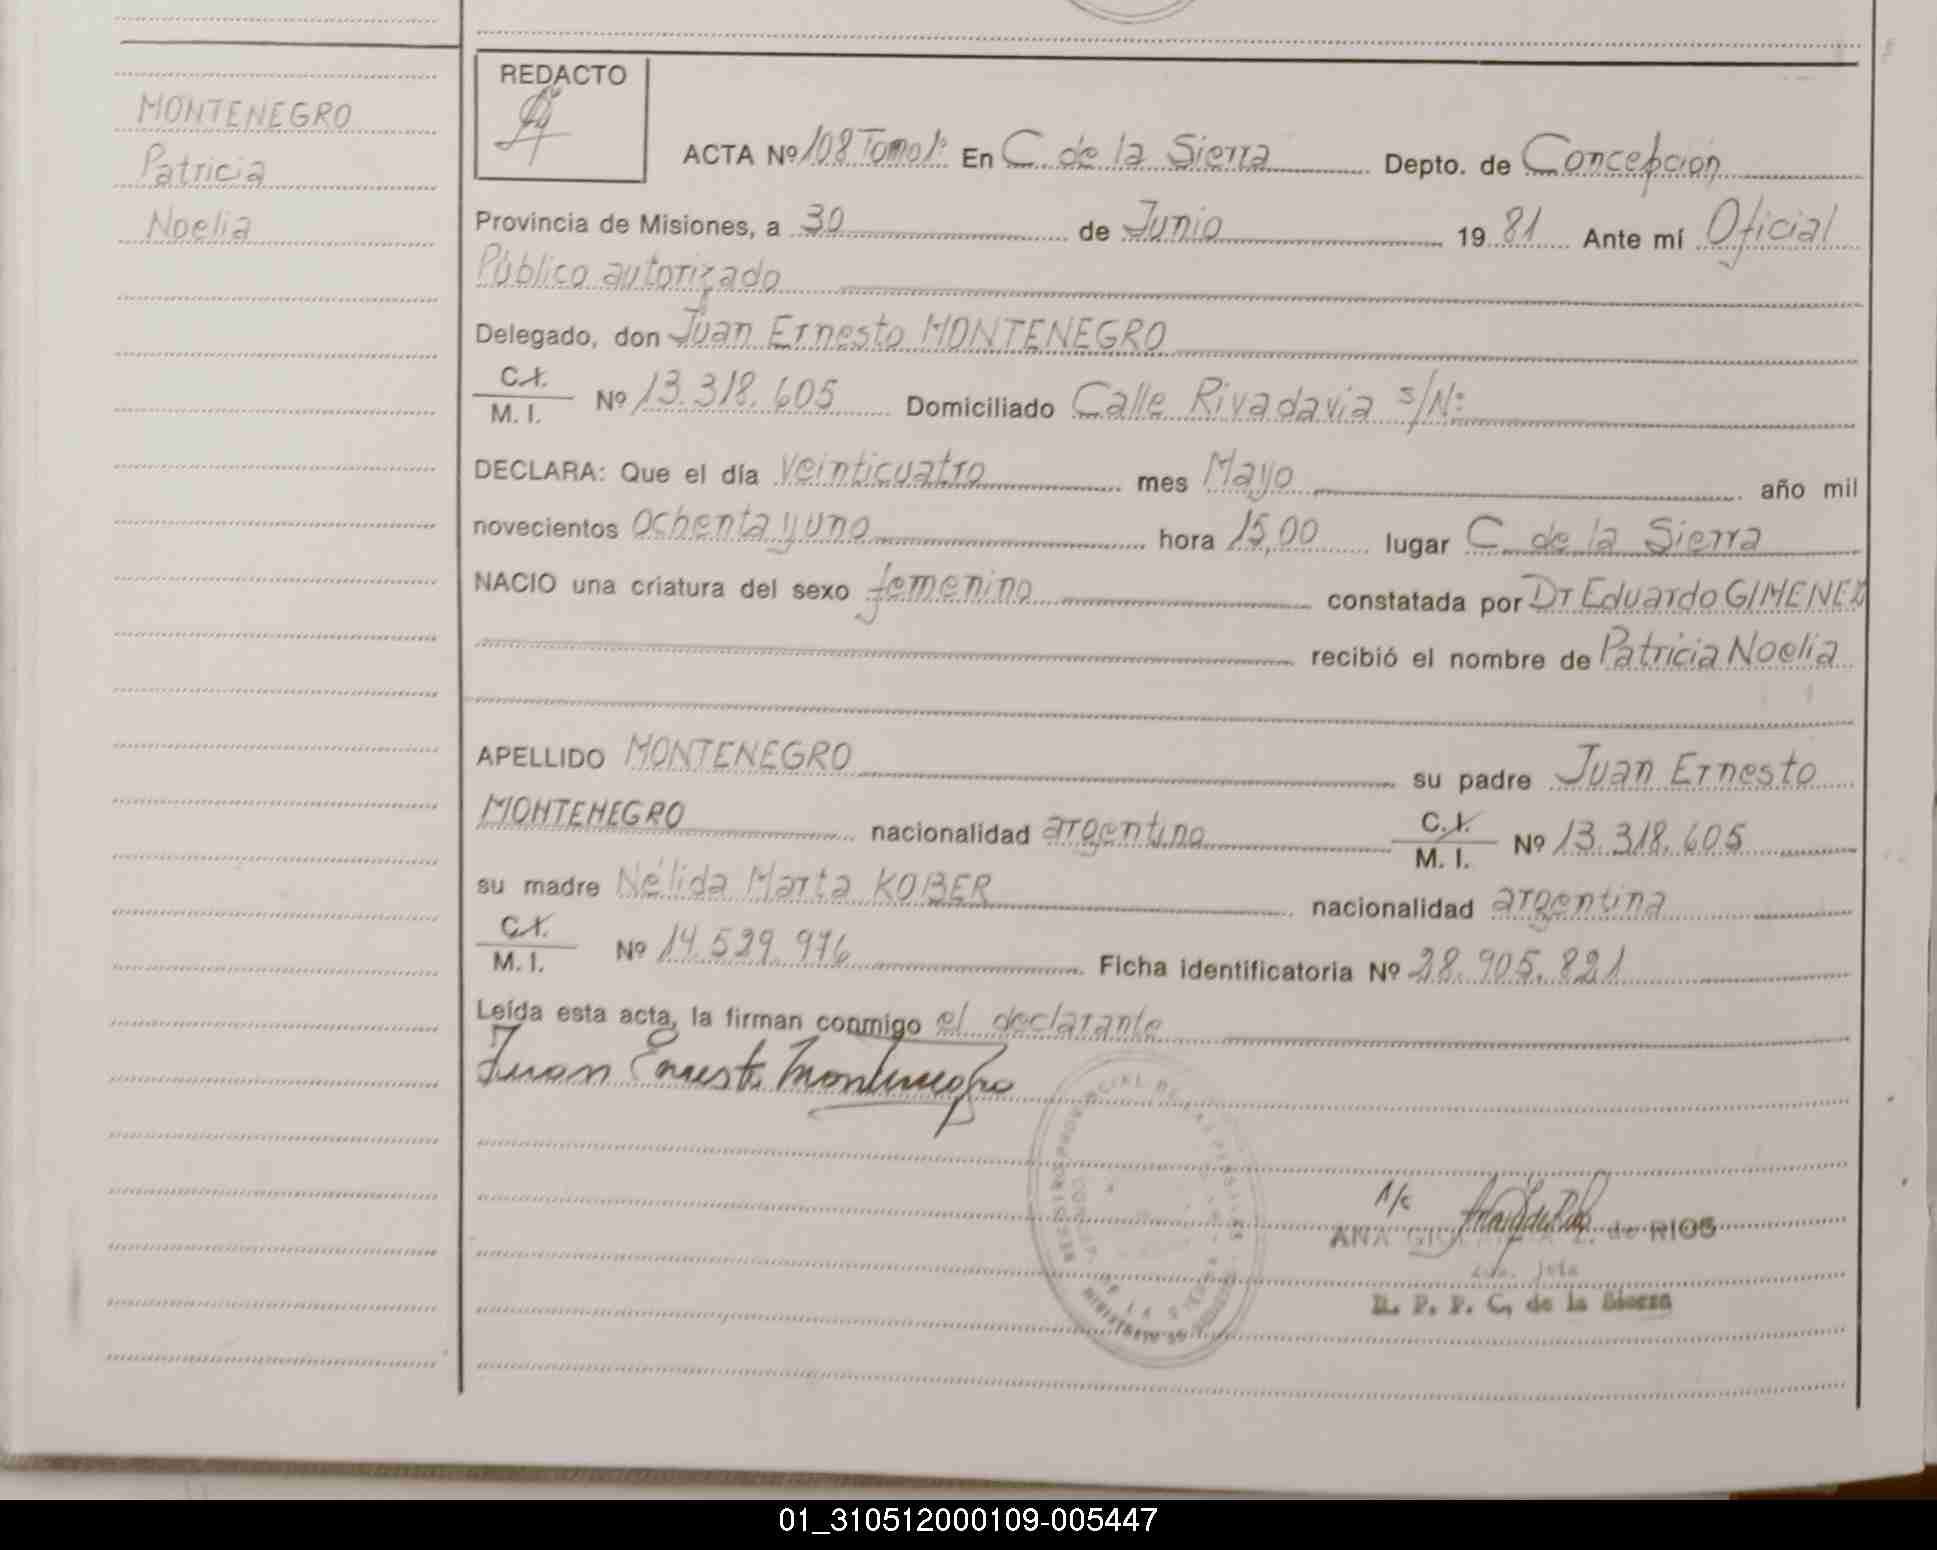 MONTENEGRO
Patricia
Noelia
REDACTO
ACTA Nº 108 Tomo 1º En C. de la Sierra Depto. de Concepción
Provincia de Misiones, a 30 de Junio 19 81 Ante mí Oficial
Público autorizado
Delegado, don Juan Ernesto MONTENEGRO
C.I.
M. I. Nº 13.318.605 Domiciliado Calle Rivadavia s/Nº
DECLARA: Que el día veinticuatro mes Mayo año mil
novecientos ochenta y uno hora 15,00 lugar C. de la Sierra
NACIO una criatura del sexo femenino constatada por Dr Eduardo GIMENEZ
recibió el nombre de Patricia Noelia
APELLIDO MONTENEGRO su padre Juan Ernesto
MONTENEGRO nacionalidad argentino C.I. M. I. Nº 13.318.605
su madre Nélida Marta KOBER nacionalidad argentina
C.I.
M. I. Nº 14.529.976 Ficha identificatoria Nº 28.905.821
Leída esta acta, la firman conmigo el declarante
Juan Ernesto Montenegro
A/c
ANA de RIOS
R. P. P. C. de la Sierra
01_310512000109-005447